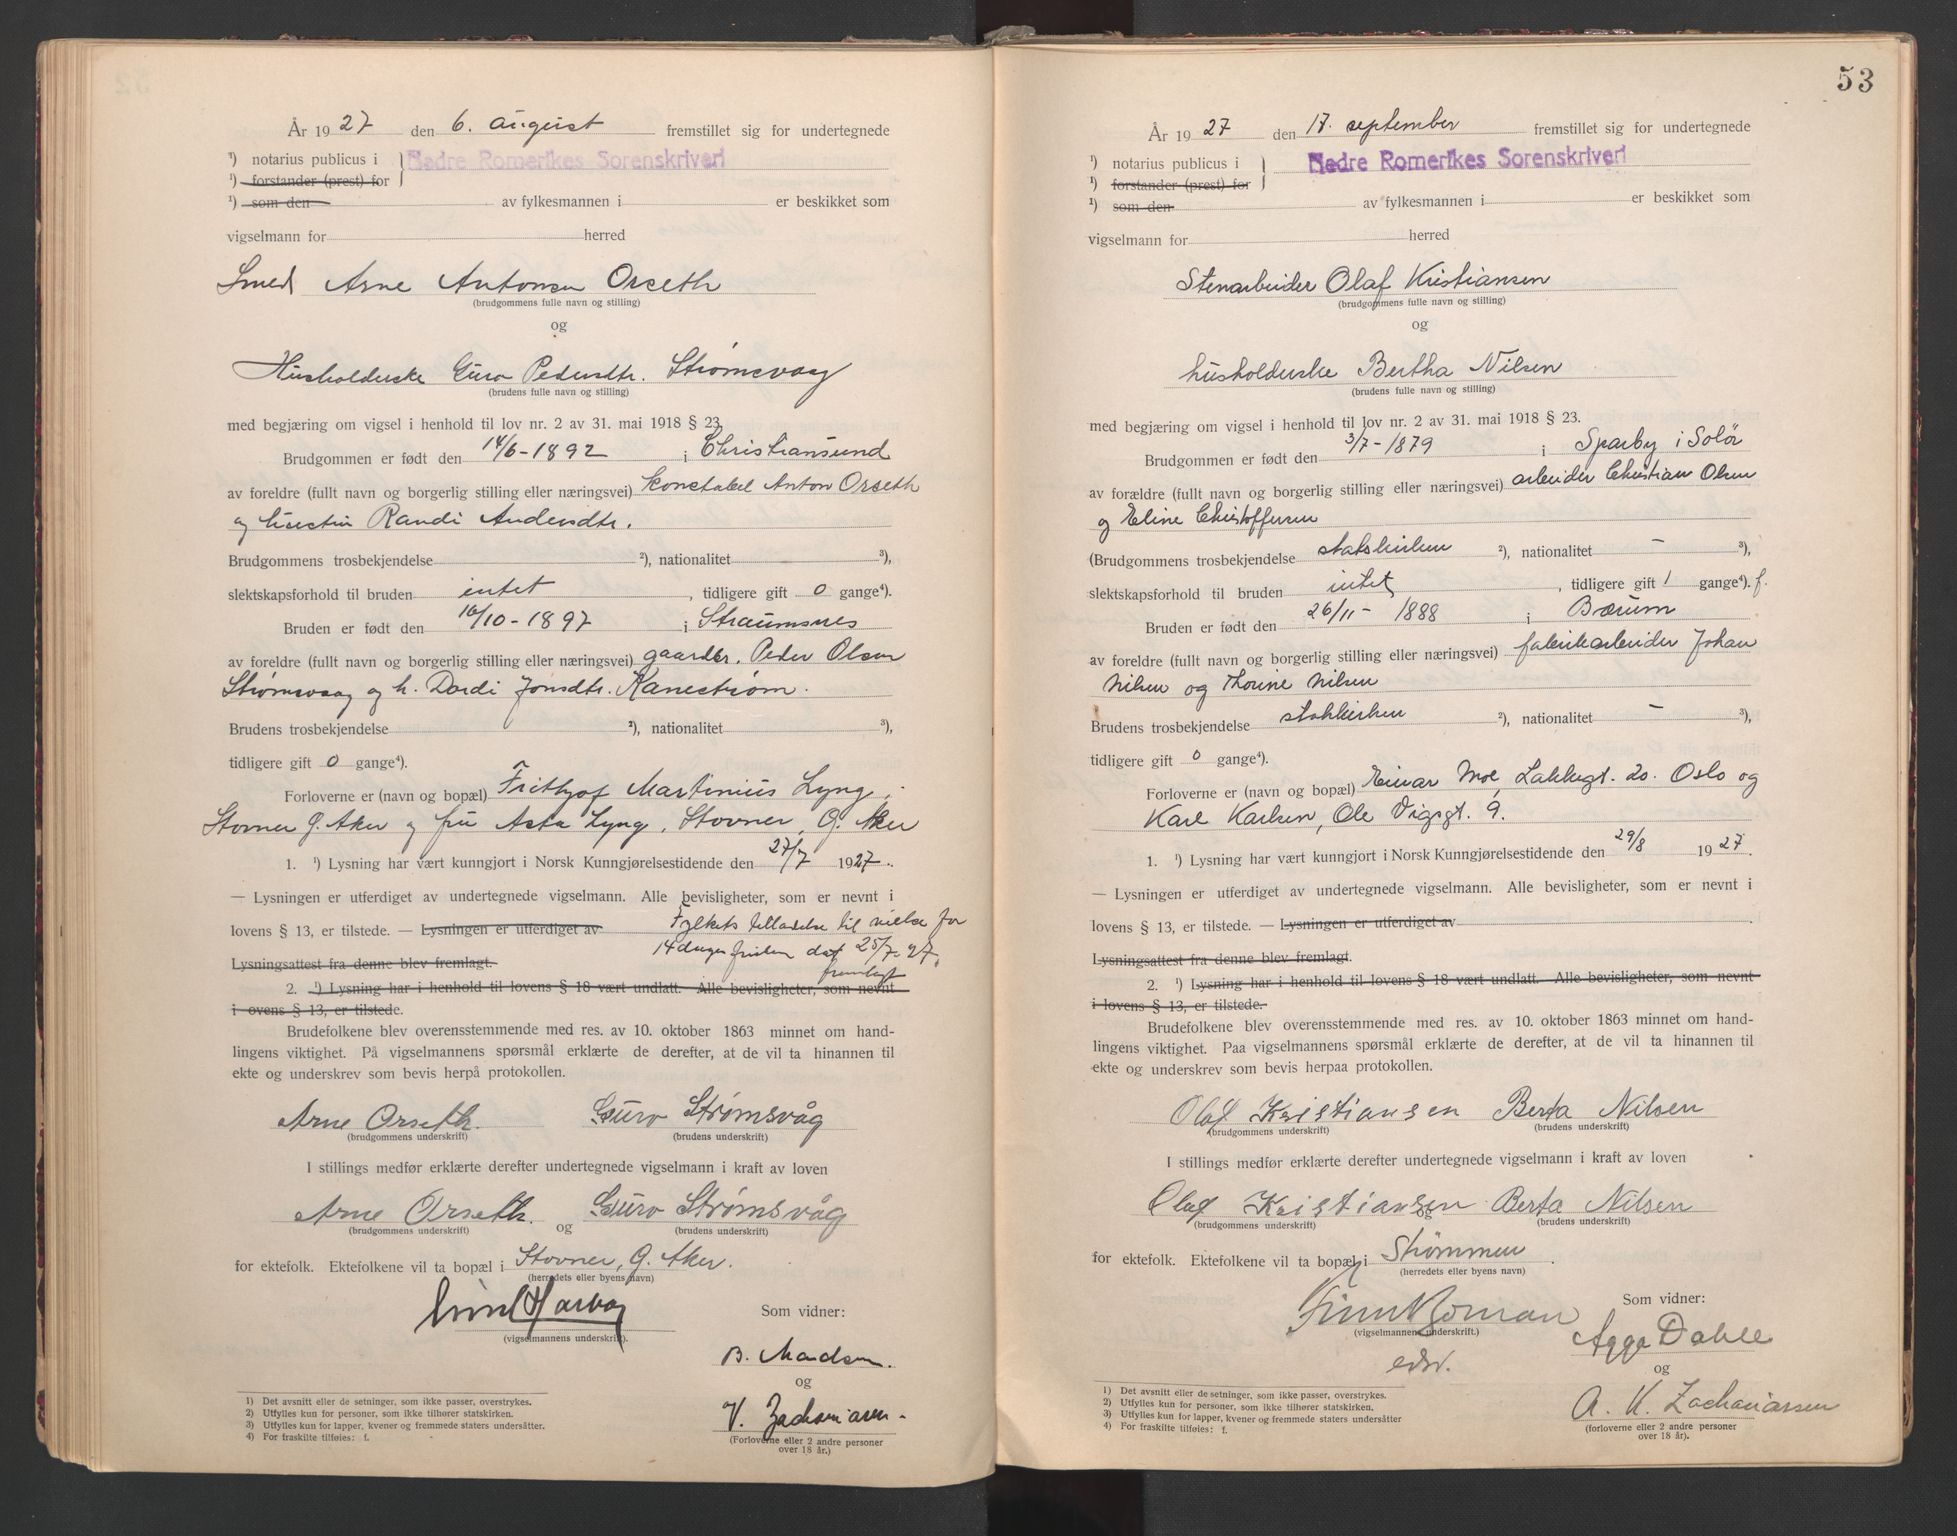 År 1927 den 6. august fremstillet sig for undertegnede
¹) notarius publicus i } Nedre Romerikes Sorenskriveri
¹) forstander (prest) for
¹) som den av fylkesmannen i er beskikket som
vigselmann for herred
Smed Arne Antonsen Orseth
(brudgommens fulle navn og stilling)
og
Husholderske Guro Pedersdtr. Strømsvaag
(brudens fulle navn og stilling)
med begjæring om vigsel i henhold til lov nr. 2 av 31. mai 1918 § 23.
Brudgommen er født den 14/6-1892 i Christiansund
av foreldre (fullt navn og borgerlig stilling eller næringsvei) konstabel Anton Orseth
og hustru Randi Andersdtr.
Brudgommens trosbekjendelse ²), nationalitet ³),
slektskapsforhold til bruden intet, tidligere gift 0 gange⁴).
Bruden er født den 16/10-1897 i Straumsnes
av foreldre (fullt navn og borgerlig stilling eller næringsvei) gaardbr. Peder Olsen
Strømsvaag og h. Dordi Jonsdtr. Kanestrøm.
Brudens trosbekjendelse ²), nationalitet ³),
tidligere gift 0 gange⁴).
Forloverne er (navn og bopæl) Frithjof Martinius Lyng,
Stovner G. Aker og fru Asta Lyng, Stovner, G. Aker
1. ¹) Lysning har vært kunngjort i Norsk Kunngjørelsestidende den 27/7 1927.
— Lysningen er utferdiget av undertegnede vigselmann. Alle bevisligheter, som er nevnt i
lovens § 13, er tilstede. — Lysningen er utferdiget av Fylkets tilladelse til vielse før
Lysningsattest fra denne blev fremlagt. 14 dages fristen dat 25/7-27.
fremlagt
2. ¹) Lysning har i henhold til lovens § 18 vært undlatt. Alle bevisligheter, som nevnt
i ovens § 13, er tilstede.
Brudefolkene blev overensstemmende med res. av 10. oktober 1863 minnet om hand-
lingens viktighet. På vigselmannens spørsmål erklærte de derefter, at de vil ta hinannen til
ekte og underskrev som bevis herpå protokollen.
Arne Orseth. Guro Strømsvåg
(brudgommens underskrift) (brudens underskrift)
I stillings medfør erklærte derefter undertegnede vigselmann i kraft av loven
Arne Orseth. og Guro Strømsvåg
(brudgommens underskrift) (brudens underskrift)
for ektefolk. Ektefolkene vil ta bopæl i Stovner, G. Aker.
(herredets eller byens navn)
(vigselmannens underskrift).
Som vidner:
B. Madsen.
og
V. Zachariasen.
(Forloverne eller 2 andre personer
over 18 år.)
1) Det avsnitt eller de setninger, som ikke passer, overstrykes.
2) Utfylles kun for personer, som ikke tilhører statskirken.
3) Utfylles kun for lapper, kvener og fremmede staters undersåtter.
4) For fraskilte tilføies: f.
53
År 1927 den 17. september fremstillet sig for undertegnede
¹) notarius publicus i } Nedre Romerikes Sorenskriveri
¹) forstander (prest) for
¹) som den av fylkesmannen i er beskikket som
vigselmann for herred
Stenarbeider Olaf Kristiansen
(brudgommens fulle navn og stilling)
og
husholderske Bertha Nilsen
(brudens fulle navn og stilling)
med begjæring om vigsel i henhold til lov nr. 2 av 31. mai 1918 § 23.
Brudgommen er født den 3/7-1879 i Sparby i Solør
av forældre (fullt navn og borgerlig stilling eller næringsvei) arbeider Christian Olsen
og Eline Christoffersen
(Brudgommens trosbekjendelse statskirken ²), nationalitet - ³),
slektskapsforhold til bruden intet, tidligere gift 1 gange⁴). f.
Bruden er født den 26/11-1888 i Bærum
av foreldre (fullt navn og borgerlig stilling eller næringsvei) fabrikarbeider Johan
Nilsen og Thorine Nilsen
Brudens trosbekjendelse statskirken ²), nationalitet - ³),
tidligere gift 0 gange⁴).
Forloverne er (navn og bopæl) Einar Moe, Lakkegt. 20. Oslo og
Karl Karlsen, Ole Vigsgt. 9.
1. ¹) Lysning har vært kunngjort i Norsk Kunngjørelsestidende den 29/8 1927.
— Lysningen er utferdiget av undertegnede vigselmann. Alle bevisligheter, som er nevnt i
lovens § 13, er tilstede. — Lysningen er utferdiget av
Lysningsattest fra denne blev fremlagt.
2. ¹) Lysning har i henhold til lovens § 18 vært undlatt. Alle bevisligheter, som nevnt
i lovens § 13, er tilstede.
Brudefolkene blev overensstemmende med res. av 10. oktober 1863 minnet om hand-
lingens viktighet. Paa vigselmannens spørsmål erklærte de derefter, at de vil ta hinannen til
ekte og underskrev som bevis herpaa protokollen.
Olaf Kristiansen Berta Nilsen
(brudgommens underskrift) (brudens underskrift)
I stillings medfør erklærte derefter undertegnede vigselmann i kraft av loven
Olaf Kristiansen og Berta Nilsen
(brudgommens underskrift) (brudens underskrift)
for ektefolk. Ektefolkene vil ta bopæl i Strømmen.
(herredets eller byens navn)
Finn Roman
(vigselmannens underskrift.)
edsv.
Som vidner:
Agga Dahle
og
A. K. Zachariassen
(forloverne eller 2 andre personer
over 18 år).
1) Det avsnitt eller de setninger, som ikke passer, overstrykes.
2) Utfylles kun for personer, som ikke tilhører statskirken.
3) Utfylles kun for lapper, kvener og fremmede staters undersåtter
4) For fraskilte tilføies: f.